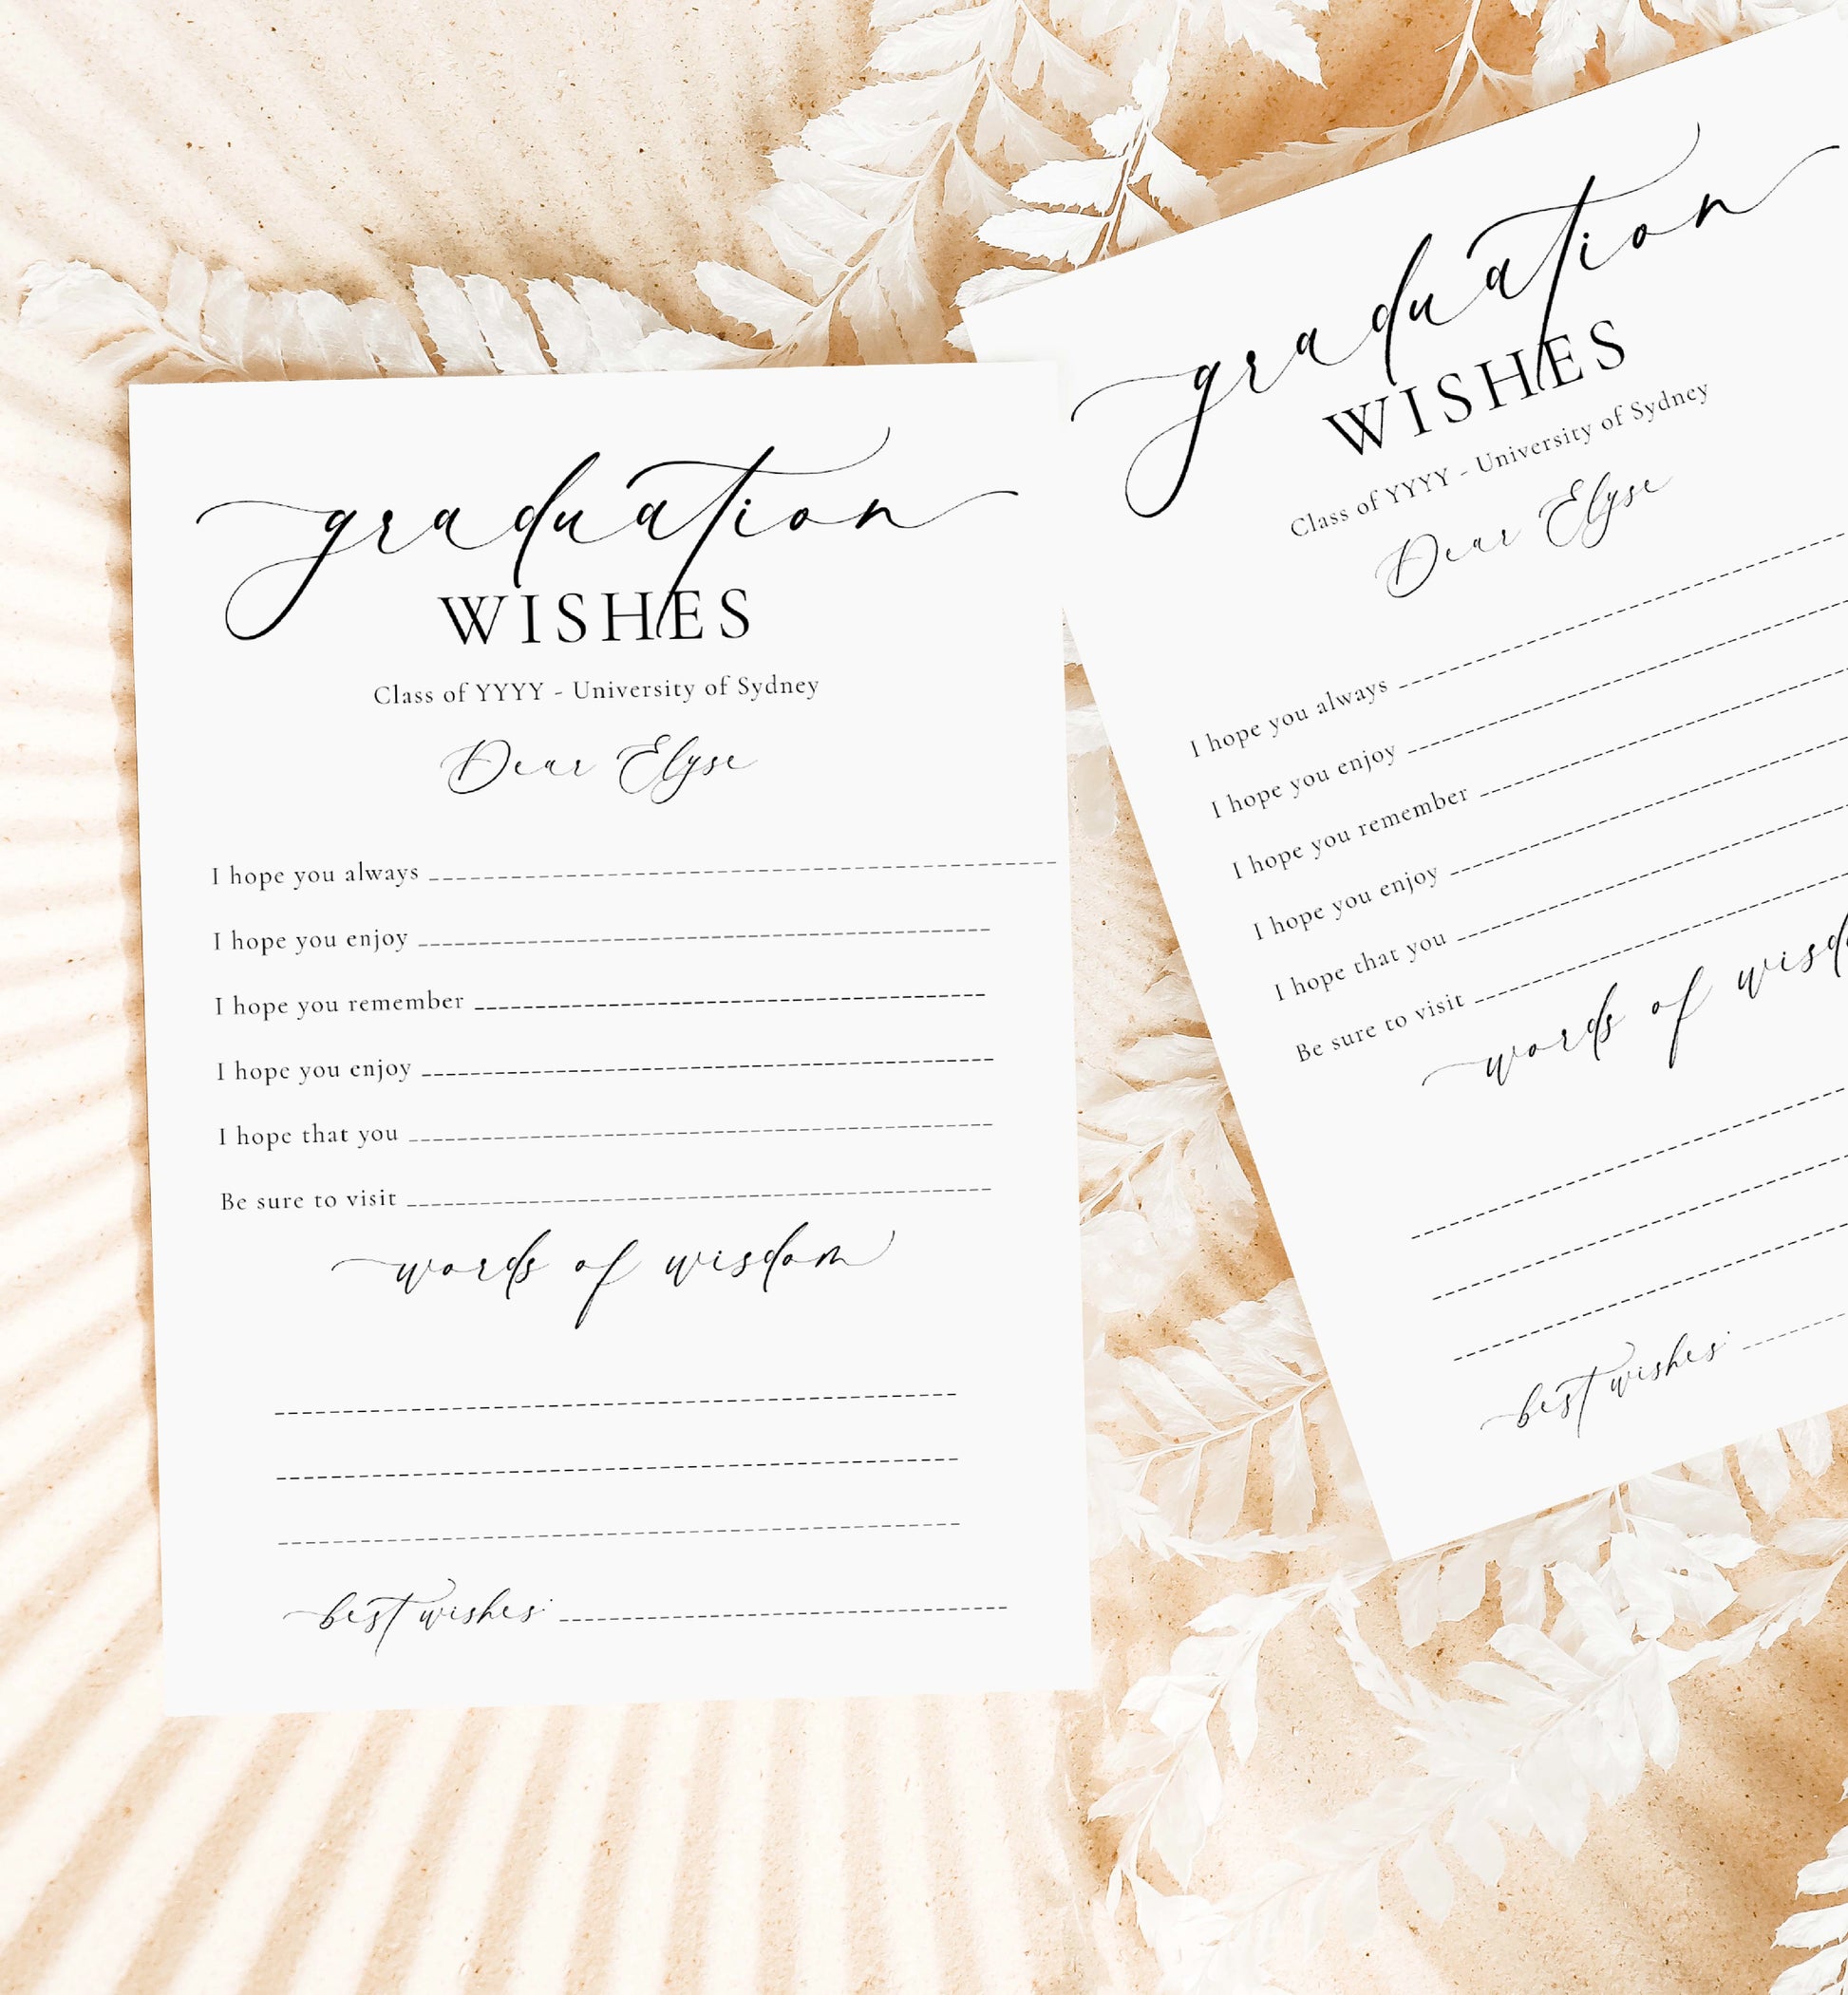 graduation
WISHES
Class of YYYY - University of Sydney
Dear Elyse
I hope you always
I hope you enjoy
I hope you remember
I hope you enjoy
I hope that you
Be sure to visit
words of wisdom
best wishes:
graduation
WISHES
Class of YYYY - University of Sydney
Dear Elyse
I hope you always
I hope you enjoy
I hope you remember
I hope you enjoy
I hope that you
Be sure to visit
words of wisd
best wishes: